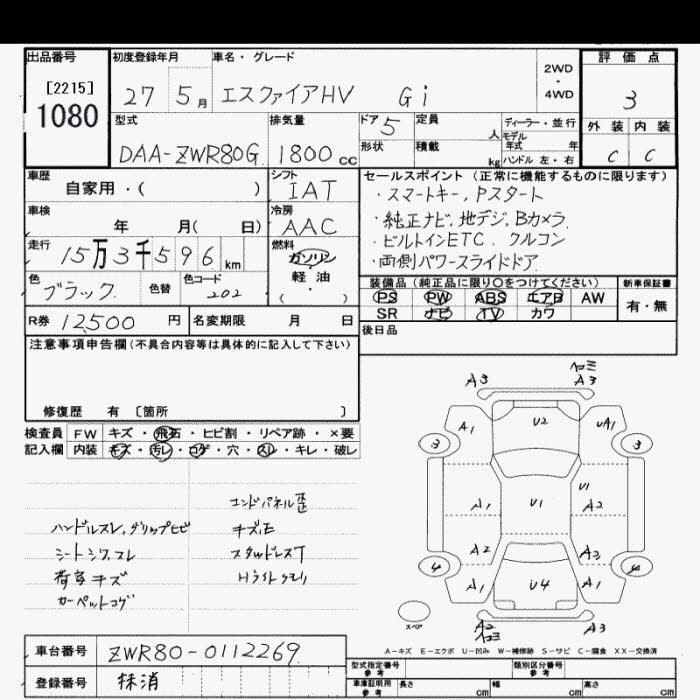 出品番号 初度登録年月 車名・グレード 評価点
[2215]
1080
27 5月 エスクァイアHV Gi
2WD
・
4WD
3
型式 排気量 ドア 5 定員 人 ディーラー・並行
モデル
年式 年
外装 内装
DAA-ZWR80G 1800cc 形状 積載 kg ハンドル 左・右
C C
車歴 シフト セールスポイント（正常に機能するものに限ります）
自家用・( ) IAT
・スマートキー, Pスタート
車検 冷房
・純正ナビ, 地デジ, Bカメラ
年 月( 日) AAC
・ビルトインETC. クルコン
走行 15万3千596km 燃料 ガソリン
・両側パワースライドドア.
・
軽・油
・
( )
色 ブラック 色替 色コード 202
装備品（純正品に限り○をつけてください） 新車保証書
PS PW ABS エアB AW 有・無
SR ナビ TV カワ
R券 12,500円 名変期限 月 日
後日品
注意事項申告欄(不具合内容等は具体的に記入して下さい)
修復歴 有 〔箇所 〕
検査員 FW キズ・飛石・ヒビ割・リペア跡・×要
記入欄 内装 キズ・汚レ・コゲ・穴・スレ・キレ・破レ
A3 A3
A1 U2 UA1
3 3
A1 U1 U1 A2
A2 A3
4 4
A1 U4 A1
スペア
A2 A3
エンドパネル歪
ハンドルスレ, グリップヒビ
シートシワ, スレ スタッドレスT
荷室キズ Hライトクモリ
カーペットコゲ
A-キズ E-エクボ U-凹み W-補修跡 S-サビ C-腐食 XX-交換済
車台番号 ZWR80-0112269
型式指定番号
参考
類別区分番号
参考
登録番号 抹消
車庫証明用
参考
長さ cm 幅 cm 高さ cm